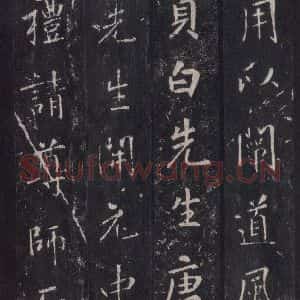 用以闡道風
貞白先生唐
先生開元中
禮請尊師
Shufawang.CN